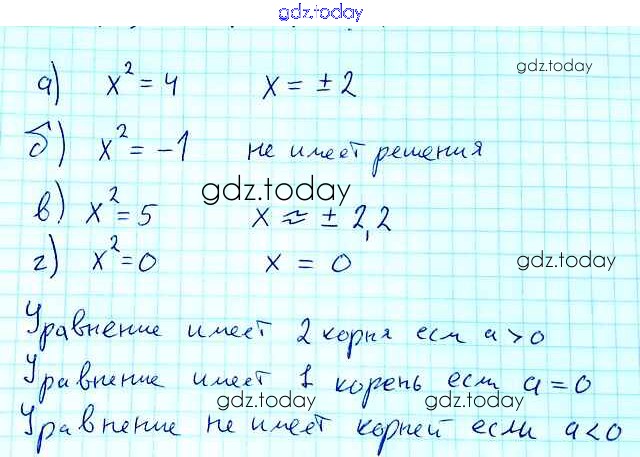 gdz.today
а) x² = 4 x = ± 2 gdz.today
б) x² = -1 не имеет решения
gdz.today
в) x² = 5 x ≈ ± 2,2
г) x² = 0 x = 0 gdz.today
Уравнение имеет 2 корня есм a > 0
Уравнение имеет 1 корень если a = 0
gdz.today gdz.today
Уравнение не имеет корней если a < 0